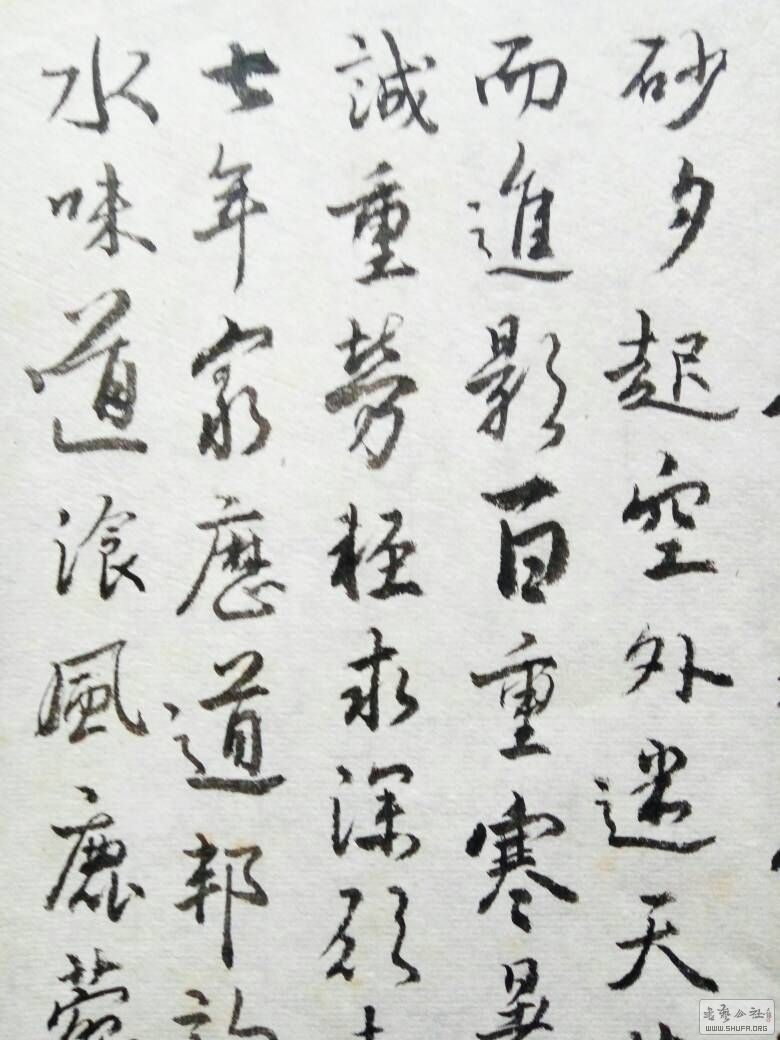 砂夕起空外迷天
而進影百重寒暑
誠重勞輕求深願
七年窮歷道邦詢
水味道飡風鹿菀
书艺公社
WWW.SHUFA.ORG